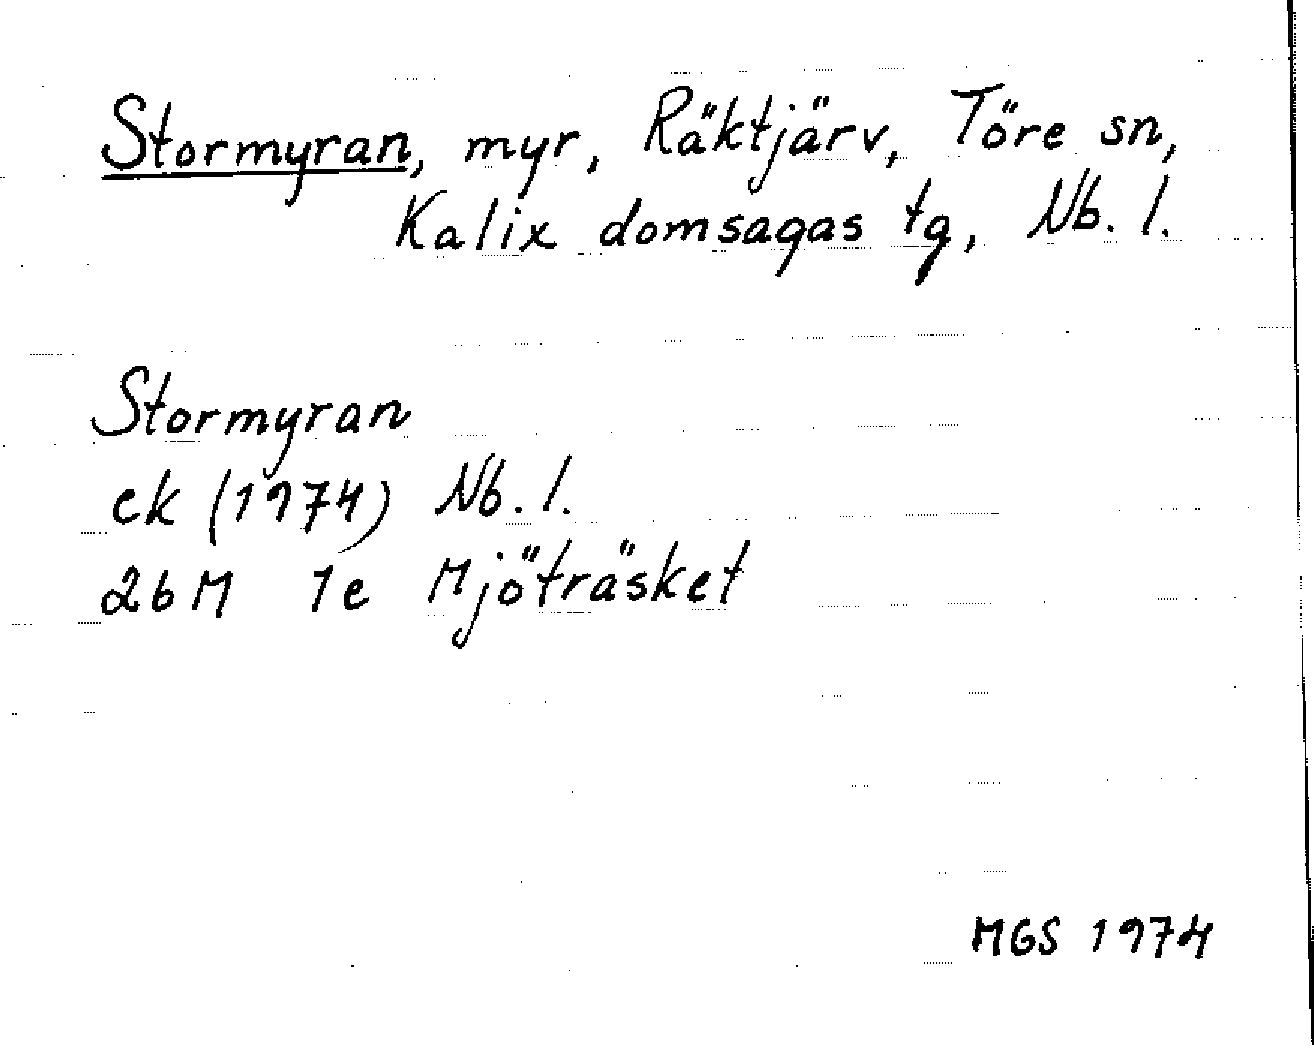 Stormyran, myr, Räktjärv, Töre sn,
Kalix domsagas tg, Nb. l.
Stormyran
ek (1974) Nb. l.
26M 1e Mjöträsket
MGS 1974